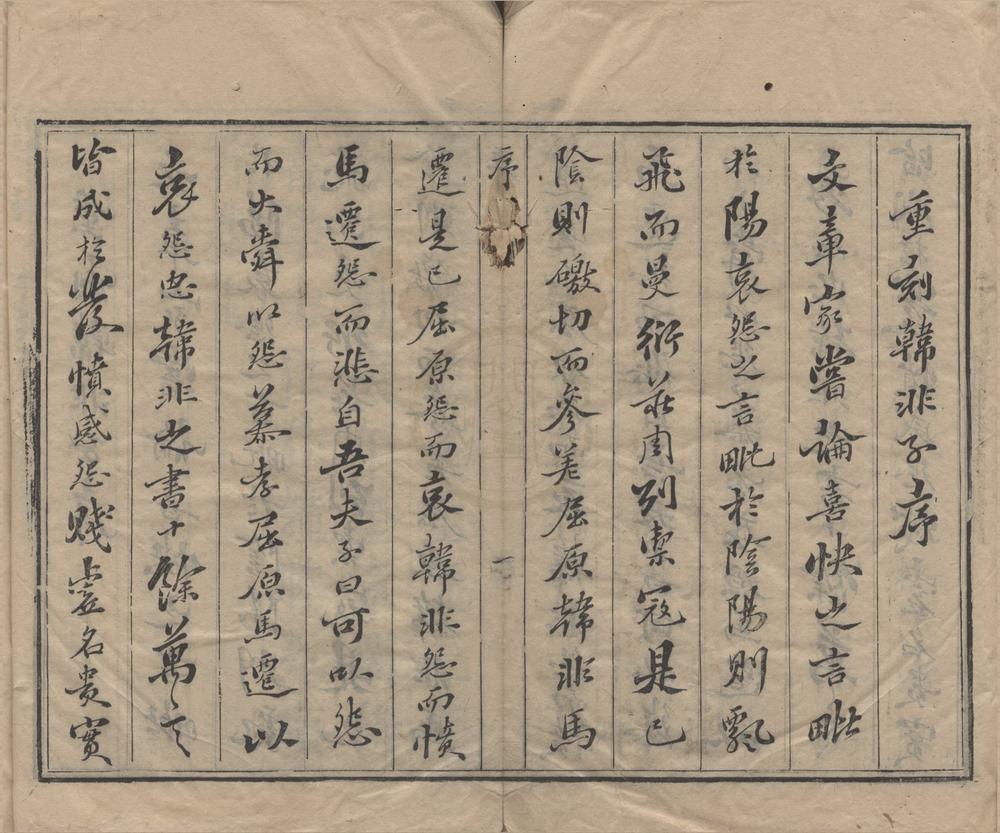 重刻韓非子序
文章家嘗論喜快之言毗
於陽哀怨之言毗於陰陽則飄
飛而曼衍莊周列禦寇是已
陰則礉切而參差屈原韓非馬
序 一
遷是已屈原怨而哀韓非怨而憤
馬遷怨而悲自吾夫子曰可以怨
而大舜以怨慕孝屈原馬遷以
哀怨忠韓非之書十餘萬言
皆成於發憤感怨賤虛名貴實